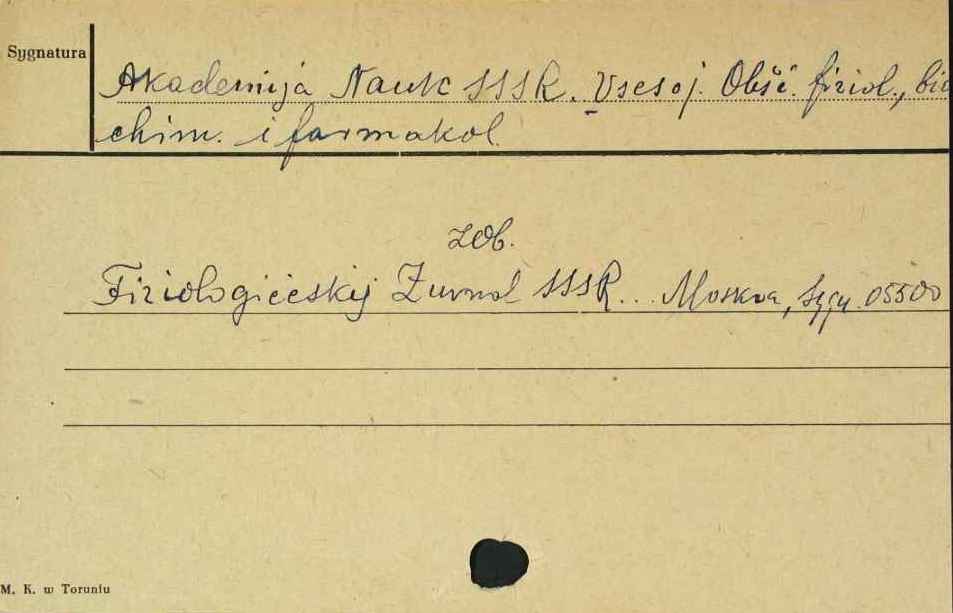 Sygnatura
Akademija Nauk SSSR. Vsesoj. Obšč. fiziol., bio
chim. i farmakol.
zob.
Fiziologičeskij Žurnal SSSR... Moskva, Sygn. 05500
M. K. w Toruniu